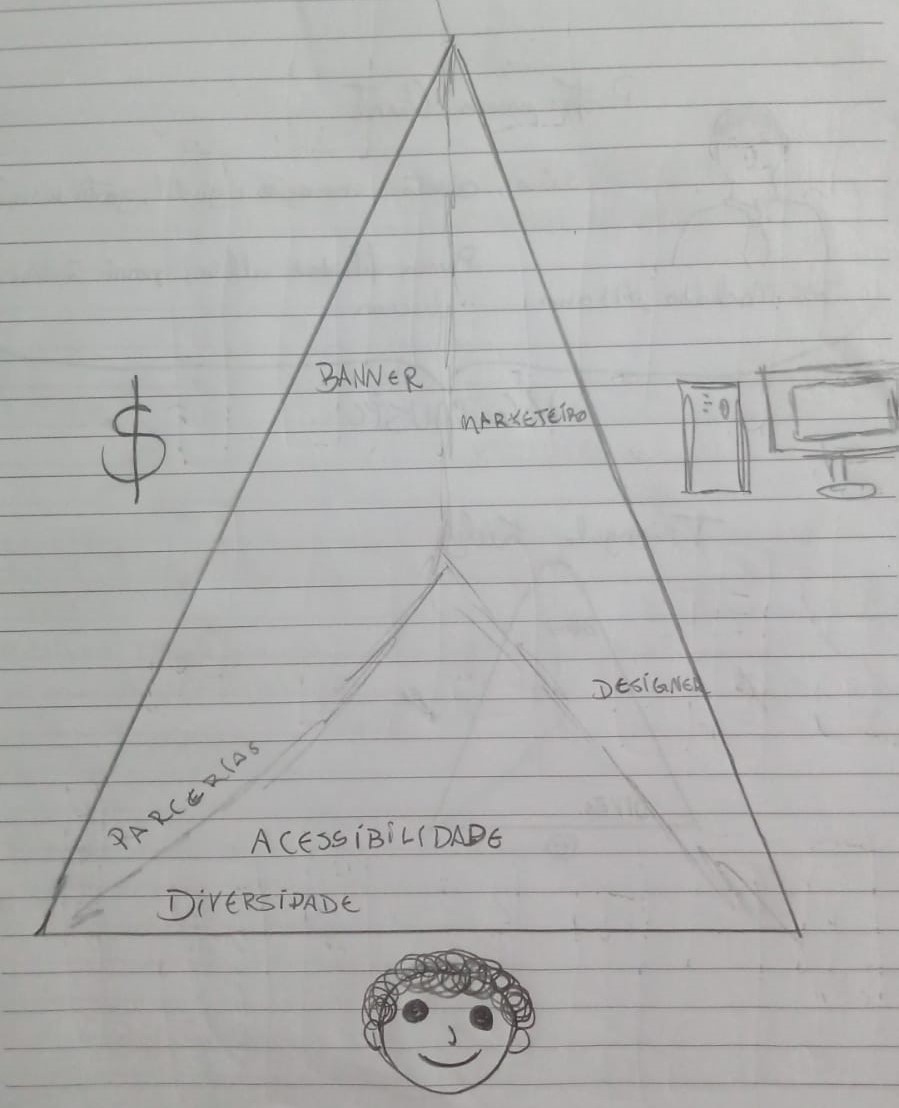 BANNER
$
MARKETEIRO
DESIGNER
PARCERIAS
ACESSIBILIDADE
DIVERSIDADE